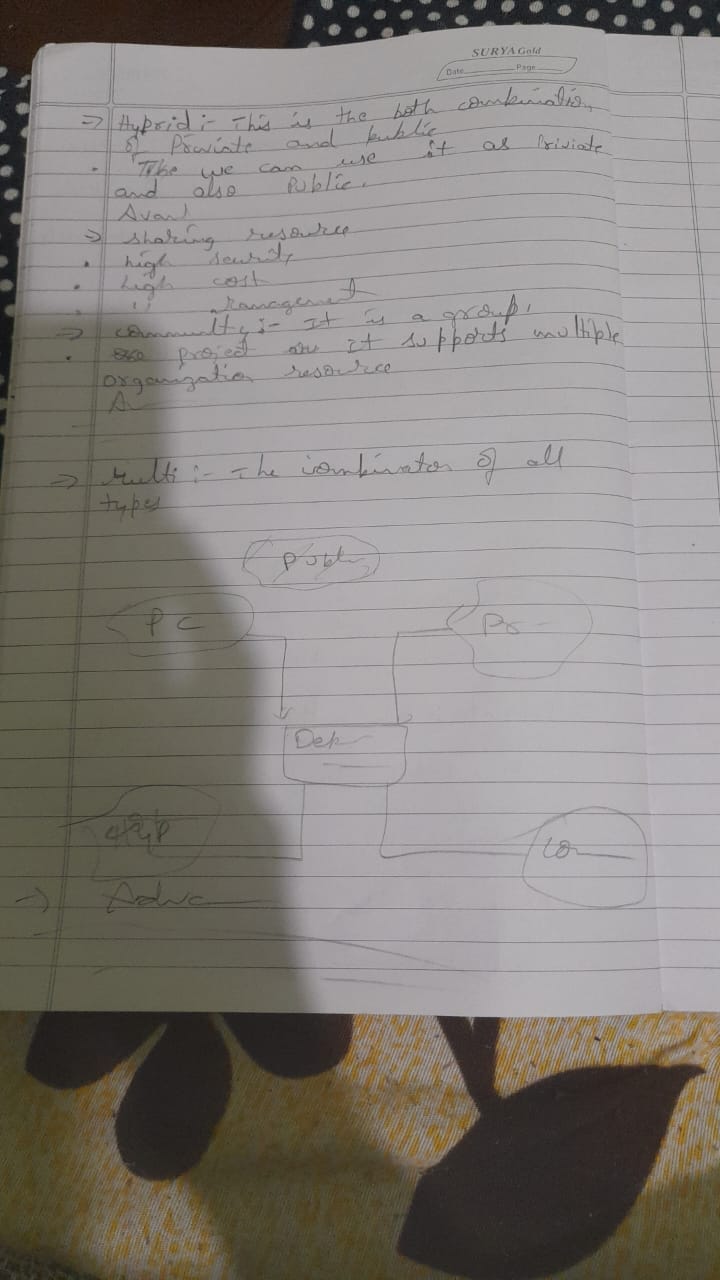 SURYA Gold
Date Page
⇒ Hybrid :- This is the both combination
of Private and public
· we can use it as Priviate
and also Public.
Avan
⇒ sharing resource
· high security
· high cost
· " management
⇒ community :- It is a group,
· project or it supports multiple
organization resource
A
⇒ Multi :- The combinaton of all
types
Publ
PC
Pr
Dep
Hyp
Co
→ Adva